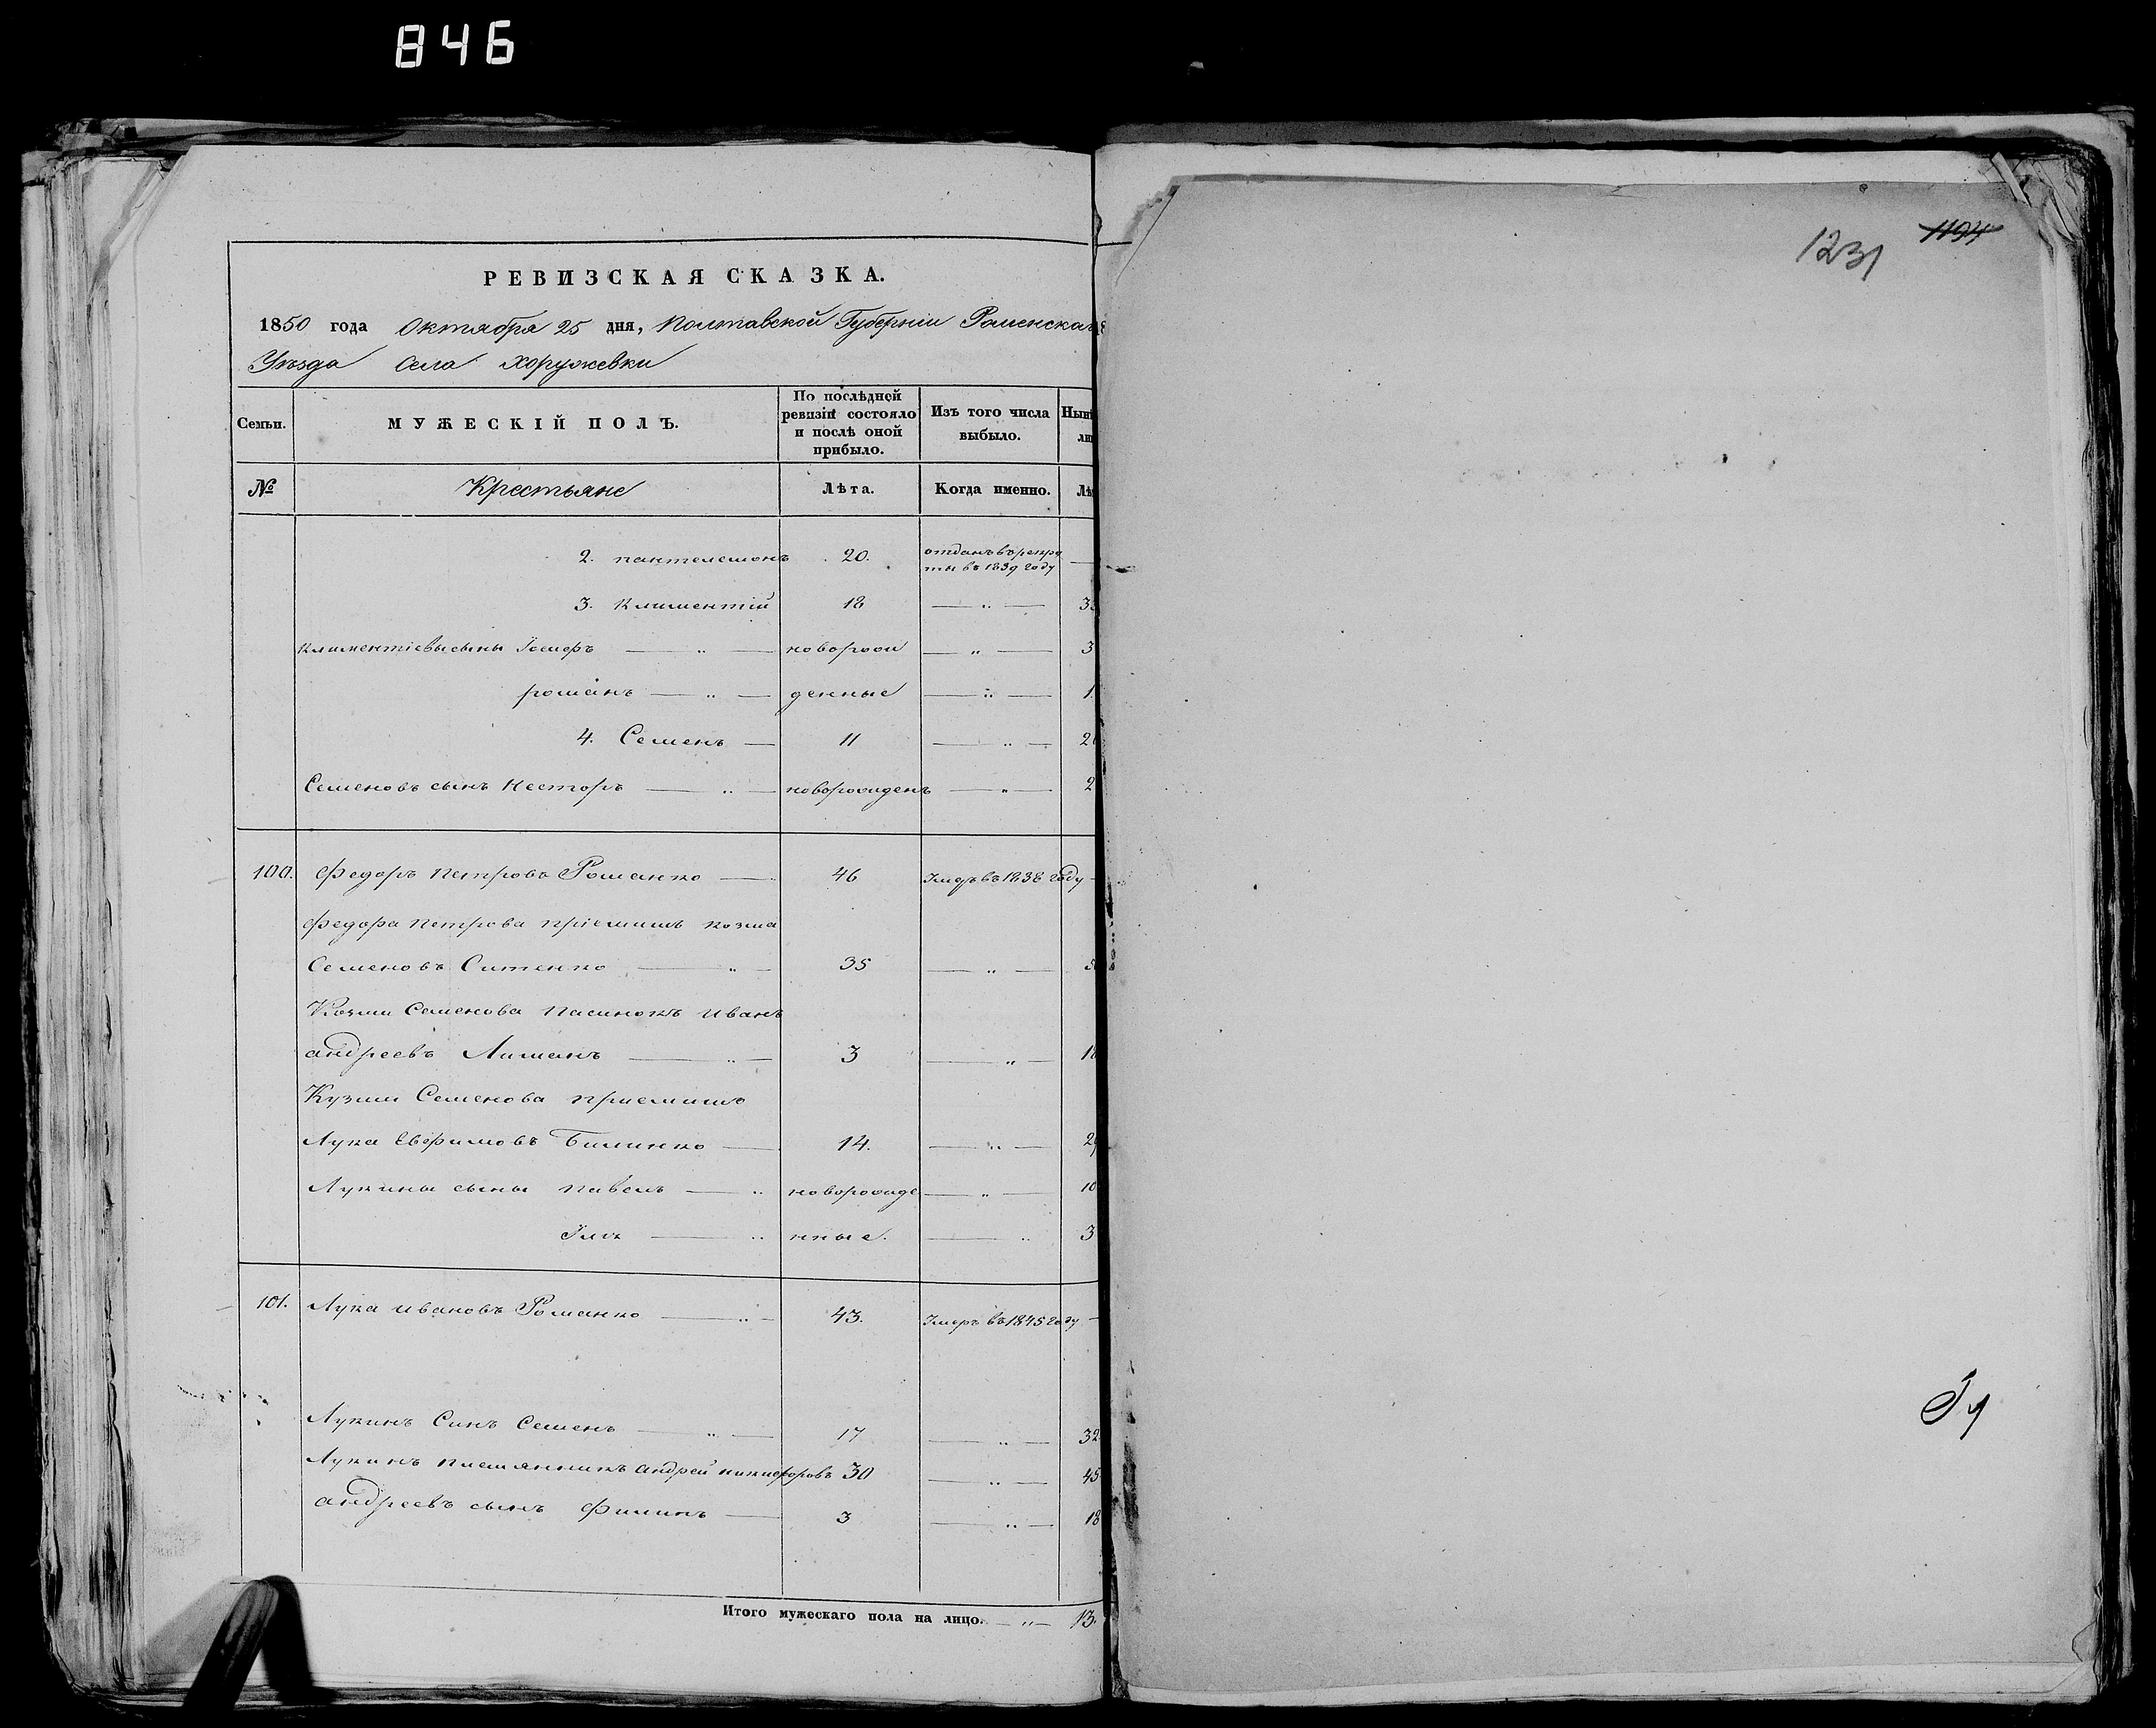 846
РЕВИЗСКАЯ СКАЗКА.
1850 года Октября 25 дня, Полтавской Губерніи Роменскаго
Уѣзда Села Хоружевки
Семьи. МУЖЕСКІЙ ПОЛЪ. По послѣдней ревизіи состояло и послѣ оной прибыло. Изъ того числа выбыло.
№ Крестьяне Лѣта. Когда именно.
2. пантелемонъ 20. отданъ въ рекру
ты въ 1839 году
3. Климентій 18 — „ —
Климентіевы сыны — „ — новорож — „ — 3
романъ — „ — денные — „ — 1
4. Семенъ — 11 — „ —
Семеновъ сынъ Несторъ — „ — новорожденъ — „ — 2
100. Федоръ Петровъ Романко — 46 Умеръ въ 1838 году —
Федора Петрова пріемышъ Козма
Семеновъ Ситенко — „ — 35 — „ —
Козми Семенова пасинокъ Иванъ
андреевъ Лиманъ — „ — 3 — „ — 18
Кузми Семенова приемишъ
Лука Евфимовъ Билинко — 14. — „ — 29
Лукины сыны Павелъ — „ новорожде — „ — 10
— „ нные. — „ 3
101. Лука Ивановъ Романко — „ — 43. Умеръ въ 1845 году —
Лукинъ Синъ Семенъ — „ — 17 — „ — 32
Лукинъ племянникъ андрей никифоровъ 30 — „ — 45
андреевъ сынъ Филипъ — 3 — „ — 18
Итого мужескаго пола на лицо. — „ — 13.
1231 1194